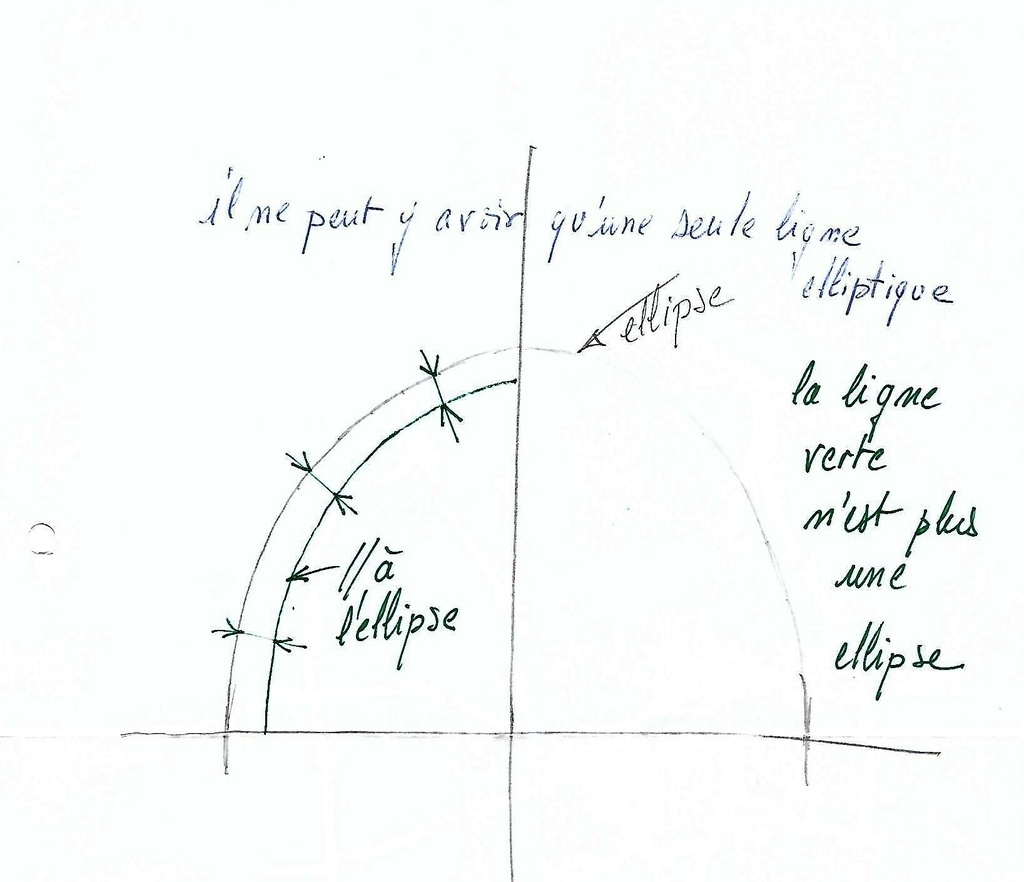 il ne peut y avoir qu'une seule ligne
elliptique
ellipse
la ligne
verte
n'est plus
une
ellipse
// à
l'ellipse